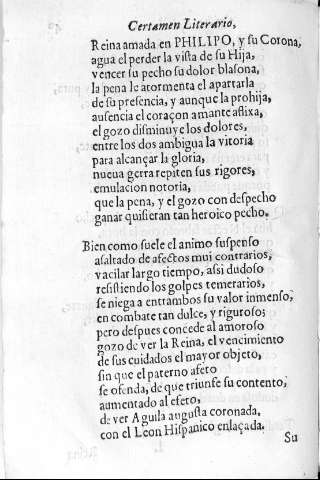 Certamen Literario,
Reina amada en PHILIPO, y ſu Corona,
agua el perder la viſta de ſu Hija,
vencer ſu pecho ſu dolor blaſona,
la pena le atormenta el apartarla
de ſu preſencia, y aunque la prohija,
auſencia el coraçon amante aflixa,
el gozo diſminuye los dolores,
entre los dos ambigua la vitoria
para alcançar la gloria,
nueua gerra repiten ſus rigores,
emulacion notoria,
que la pena, y el gozo con deſpecho
ganar quiſieran tan heroico pecho.
Bien como ſuele el animo ſuſpenſo
aſaltado de afectos mui contrarios,
vacilar largo tiempo, aſsi dudoſo
reſiſtiendo los golpes temerarios,
ſe niega a entrambos ſu valor inmenſo,
en combate tan dulce, y riguroſo;
pero deſpues concede al amoroſo
gozo de ver la Reina, el vencimiento
de ſus cuidados el mayor objeto,
ſin que el paterno afeto
ſe ofenda, de que triunfe ſu contento,
aumentado al efeto,
de ver Aguila auguſta coronada,
con el Leon Hiſpanico enlaçada.
Su